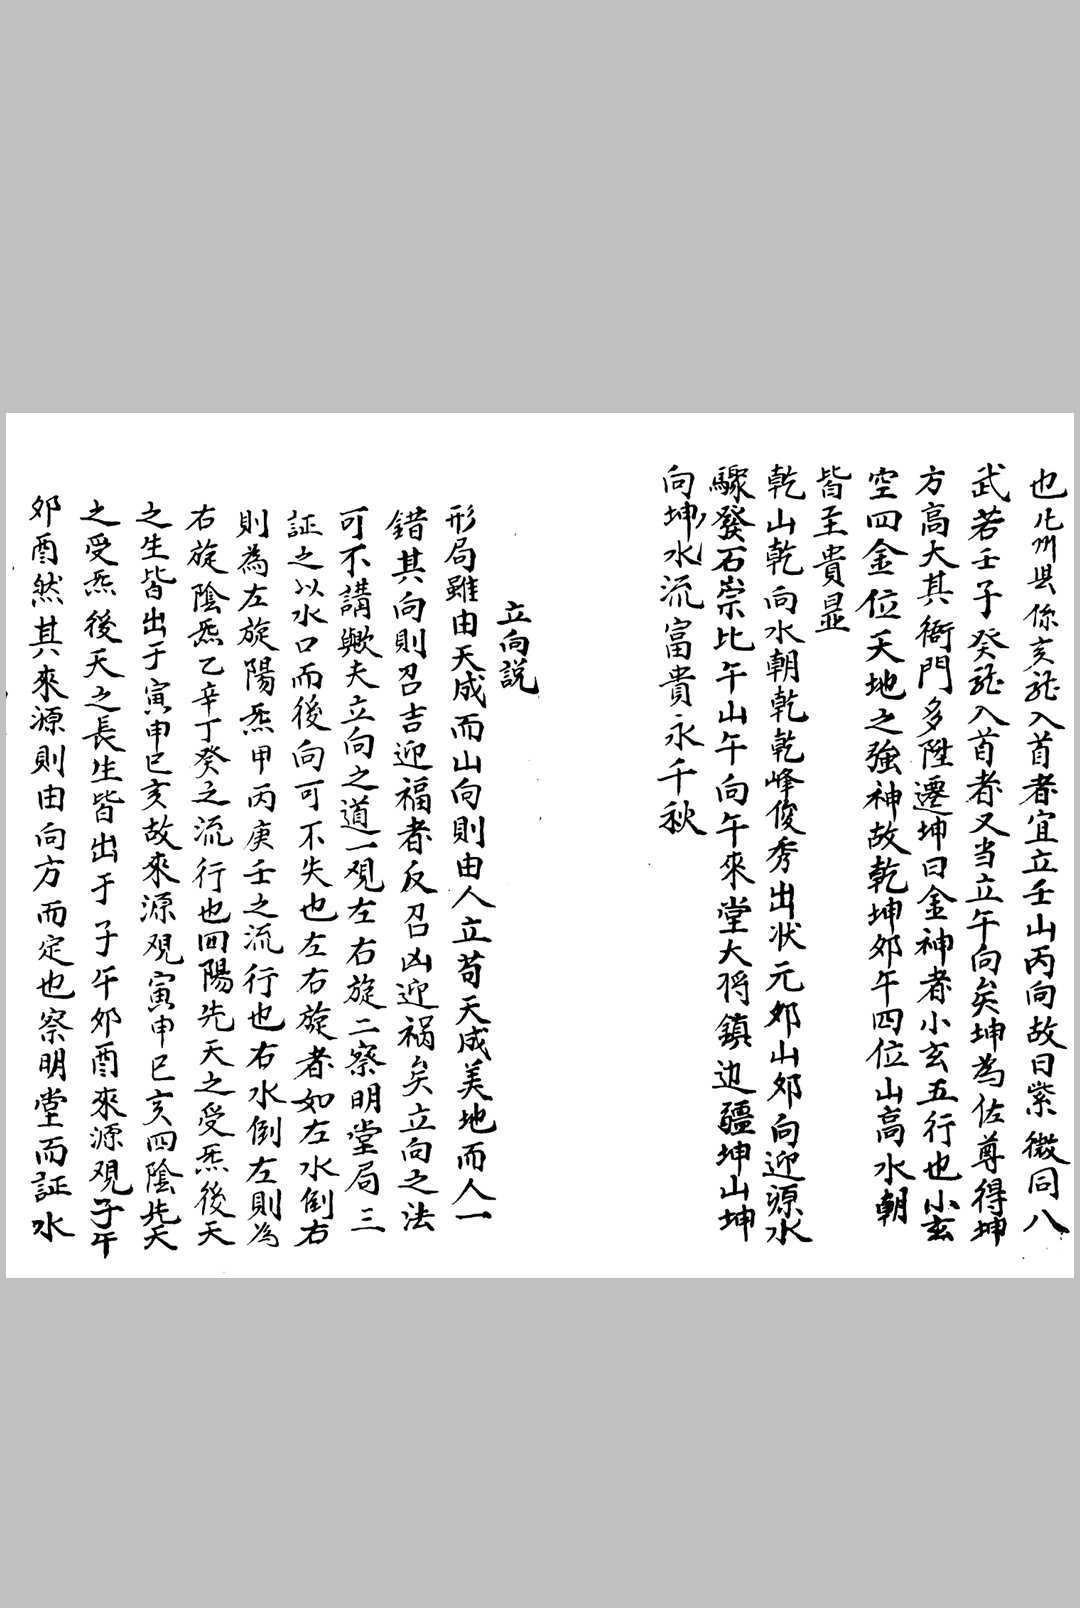 也凡州县係亥龍入首者宜立壬山丙向故曰紫微同八
武若壬子癸龍入首者又当立午向矣坤為佐尊得坤
方高大其衙門多陞遷坤曰金神者小玄五行也小玄
空四金位天地之強神故乾坤卯午四位山高水朝
皆至貴显
乾山乾向水朝乾乾峰俊秀出状元卯山卯向迎源水
驟發石崇比午山午向午來堂大将鎮边疆坤山坤
向坤水流富貴永千秋
立向説
形局雖由天成而山向則由人立苟天成美地而人一
錯其向則召吉迎福者反召凶迎禍矣立向之法
可不講歟夫立向之道一观左右旋二察明堂局三
証之以水口而後向可不失也左右旋者如左水倒右
則為左旋陽炁甲丙庚壬之流行也右水倒左則為
右旋陰炁乙辛丁癸之流行也四陽先天之受炁後天
之生皆出于寅申巳亥故來源观寅申巳亥四陰先天
之受炁後天之長生皆出于子午卯酉來源观子午
卯酉然其來源則由向方而定也察明堂而証水